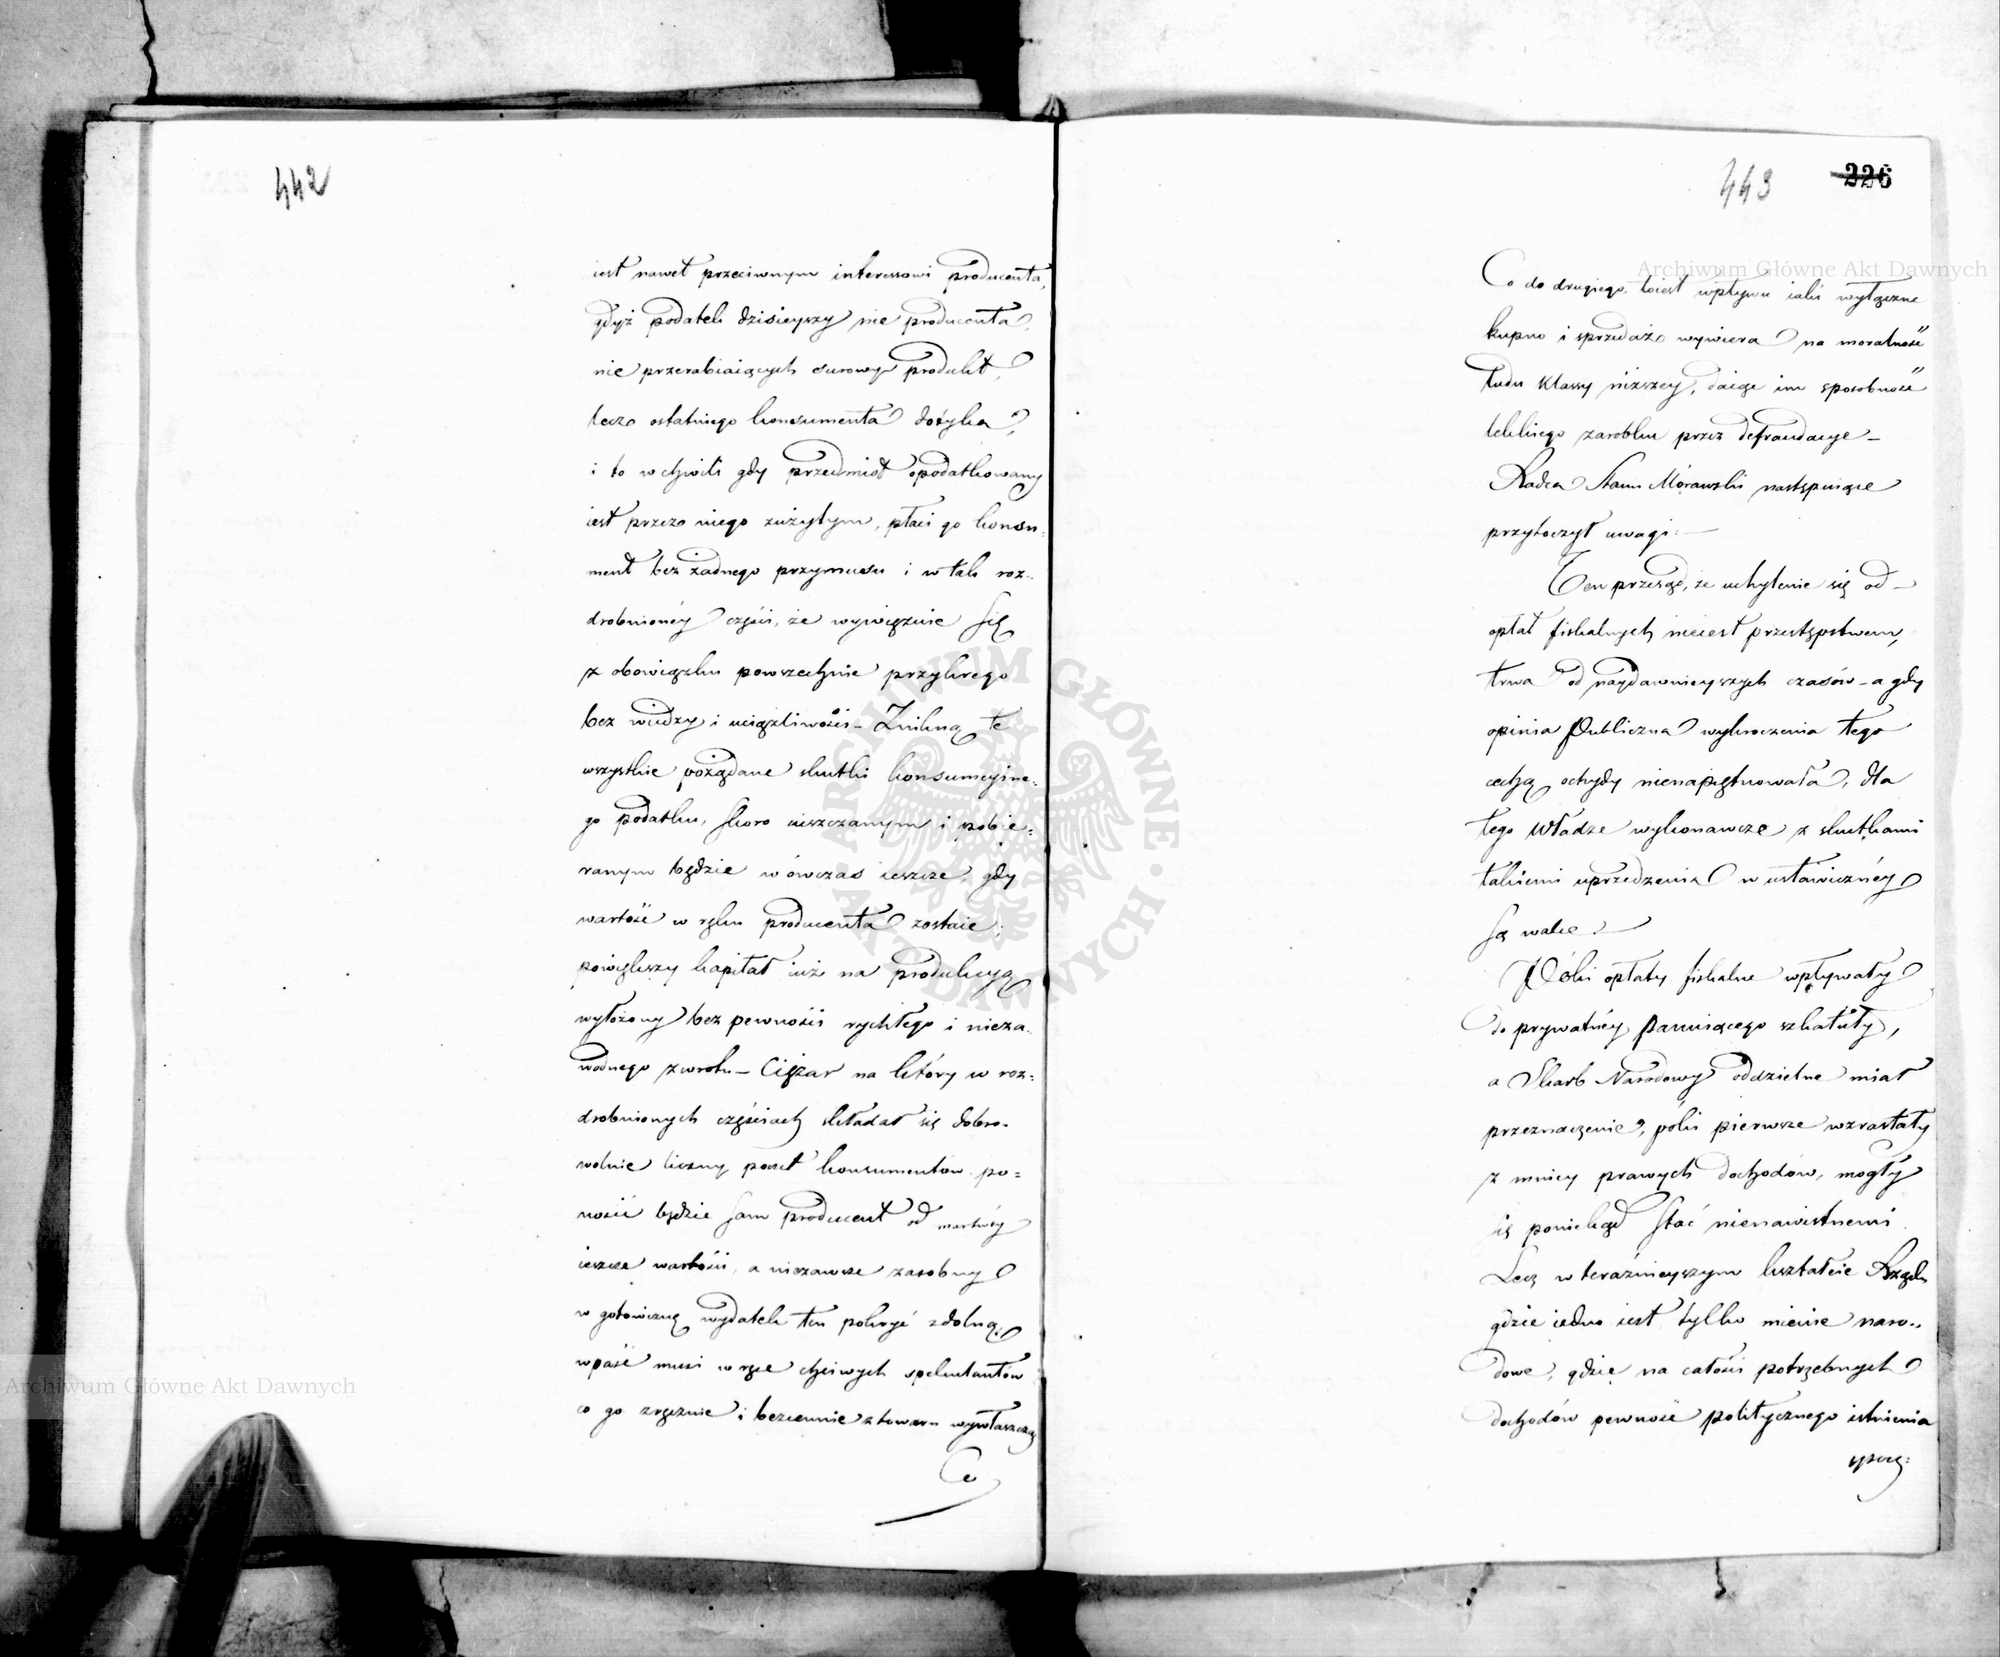 442
iest nawet przeciwnym interessowi producenta,
gdyż podatek dzisieyszy nie producenta,
nie przerabiaiących surowy produkt,
lecz ostatniego konsumenta dotyka,
i to w chwili gdy przedmiot opodatkowany
iest przez niego zużytym, płaci go konsu-
ment bez żadnego przymusu i w tak roz-
drobnioney części, że wywięzuie się
z obowiązku powszechnie przykrego
bez wiedzy i uciążliwości – Znikną te
wszystkie pożądane skutki konsumcyine-
go podatku, skoro uiszczanym i pobie-
ranym będzie wówczas ieszcze, gdy
wartość w ręku producenta zostaie;
powiększy kapitał iuż na produkcyą
wyłożony bez pewności rychłego i nieza-
wodnego zwrotu – Ciężar na który w roz-
drobnionych częściach składał się dobro-
wolnie liczny poczet konsumentów po-
nosić będzie sam producent od martwéy
ieszcze wartości, a niezawsze zasobny
w gotowiznę wydatek ten pokryć zdolną,
wpaść musi w ręce chciwych spekulantów
co go zręcznie i bezcennie z towaru wywłaszczą
Co
443
226
Co do drugiego, toiest wpływu iaki wyłączne
kupno i sprzedaż wywiera na moralność
ludu klassy niższey, daiąc im sposobność
lekkiego zarobku przez defraudacye –
Radca Stanu Morawski następuiące
przytoczył uwagi: –
Ten przesąd, że uchylenie się od –
opłat fiskalnych nieiest przestępstwem,
trwa od naydawnieyszych czasów – a gdy
opinia Publiczna wykroczenia tego
cechą ochydy nienapiętnowała, dla
tego Władze wykonawcze z skutkami
takiemi uprzedzenia w ustawicznéy
są walce. –
Póki opłaty fiskalne wpływały
do prywatnéy Panuiącego szkatuły,
a Skarb Narodowy oddzielne miał
przeznaczenie, póki pierwsze wzrastały
z mniey prawych dochodów, mogły
się poniekąd stać nienawistnemi.
Lecz w teraźnieyszym kształcie Rządu
gdzie iedno iest tylko mienie naro-
dowe, gdzie na całości potrzebnych
dochodów pewność politycznego istnienia